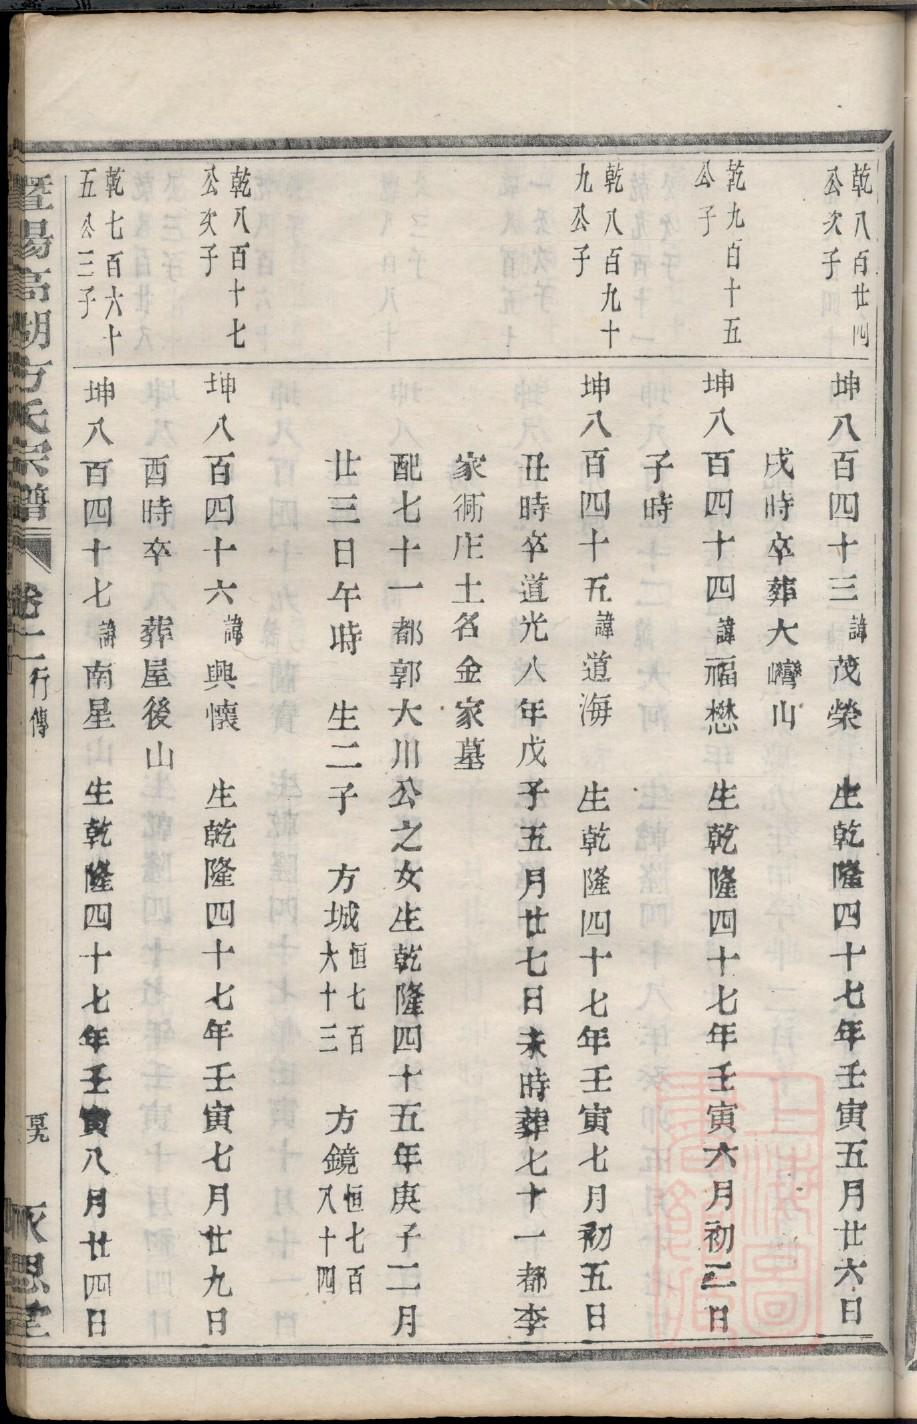 乾八百廿四
公次子
坤八百四十三諱茂榮 生乾隆四十七年壬寅五月廿六日
戌時卒葬大灣山
乾九百十五
公子
坤八百四十四諱福懋 生乾隆四十七年壬寅六月初二日
子時
乾八百九十
九公子
坤八百四十五諱道海 生乾隆四十七年壬寅七月初五日
丑時卒道光八年戊子五月廿七日未時葬七十一都李
家衕庄土名金家墓
配七十一都郭大川公之女生乾隆四十五年庚子二月
廿三日午時 生二子 方城恒七百六十三 方鏡恒七百八十四
乾八百十七
公次子
坤八百四十六諱興懷 生乾隆四十七年壬寅七月廿九日
酉時卒 葬屋後山
乾七百六十
五公三子
坤八百四十七諱南星 生乾隆四十七年壬寅八月廿四日
暨陽高湖方氏宗譜 卷二 行傳 永思堂